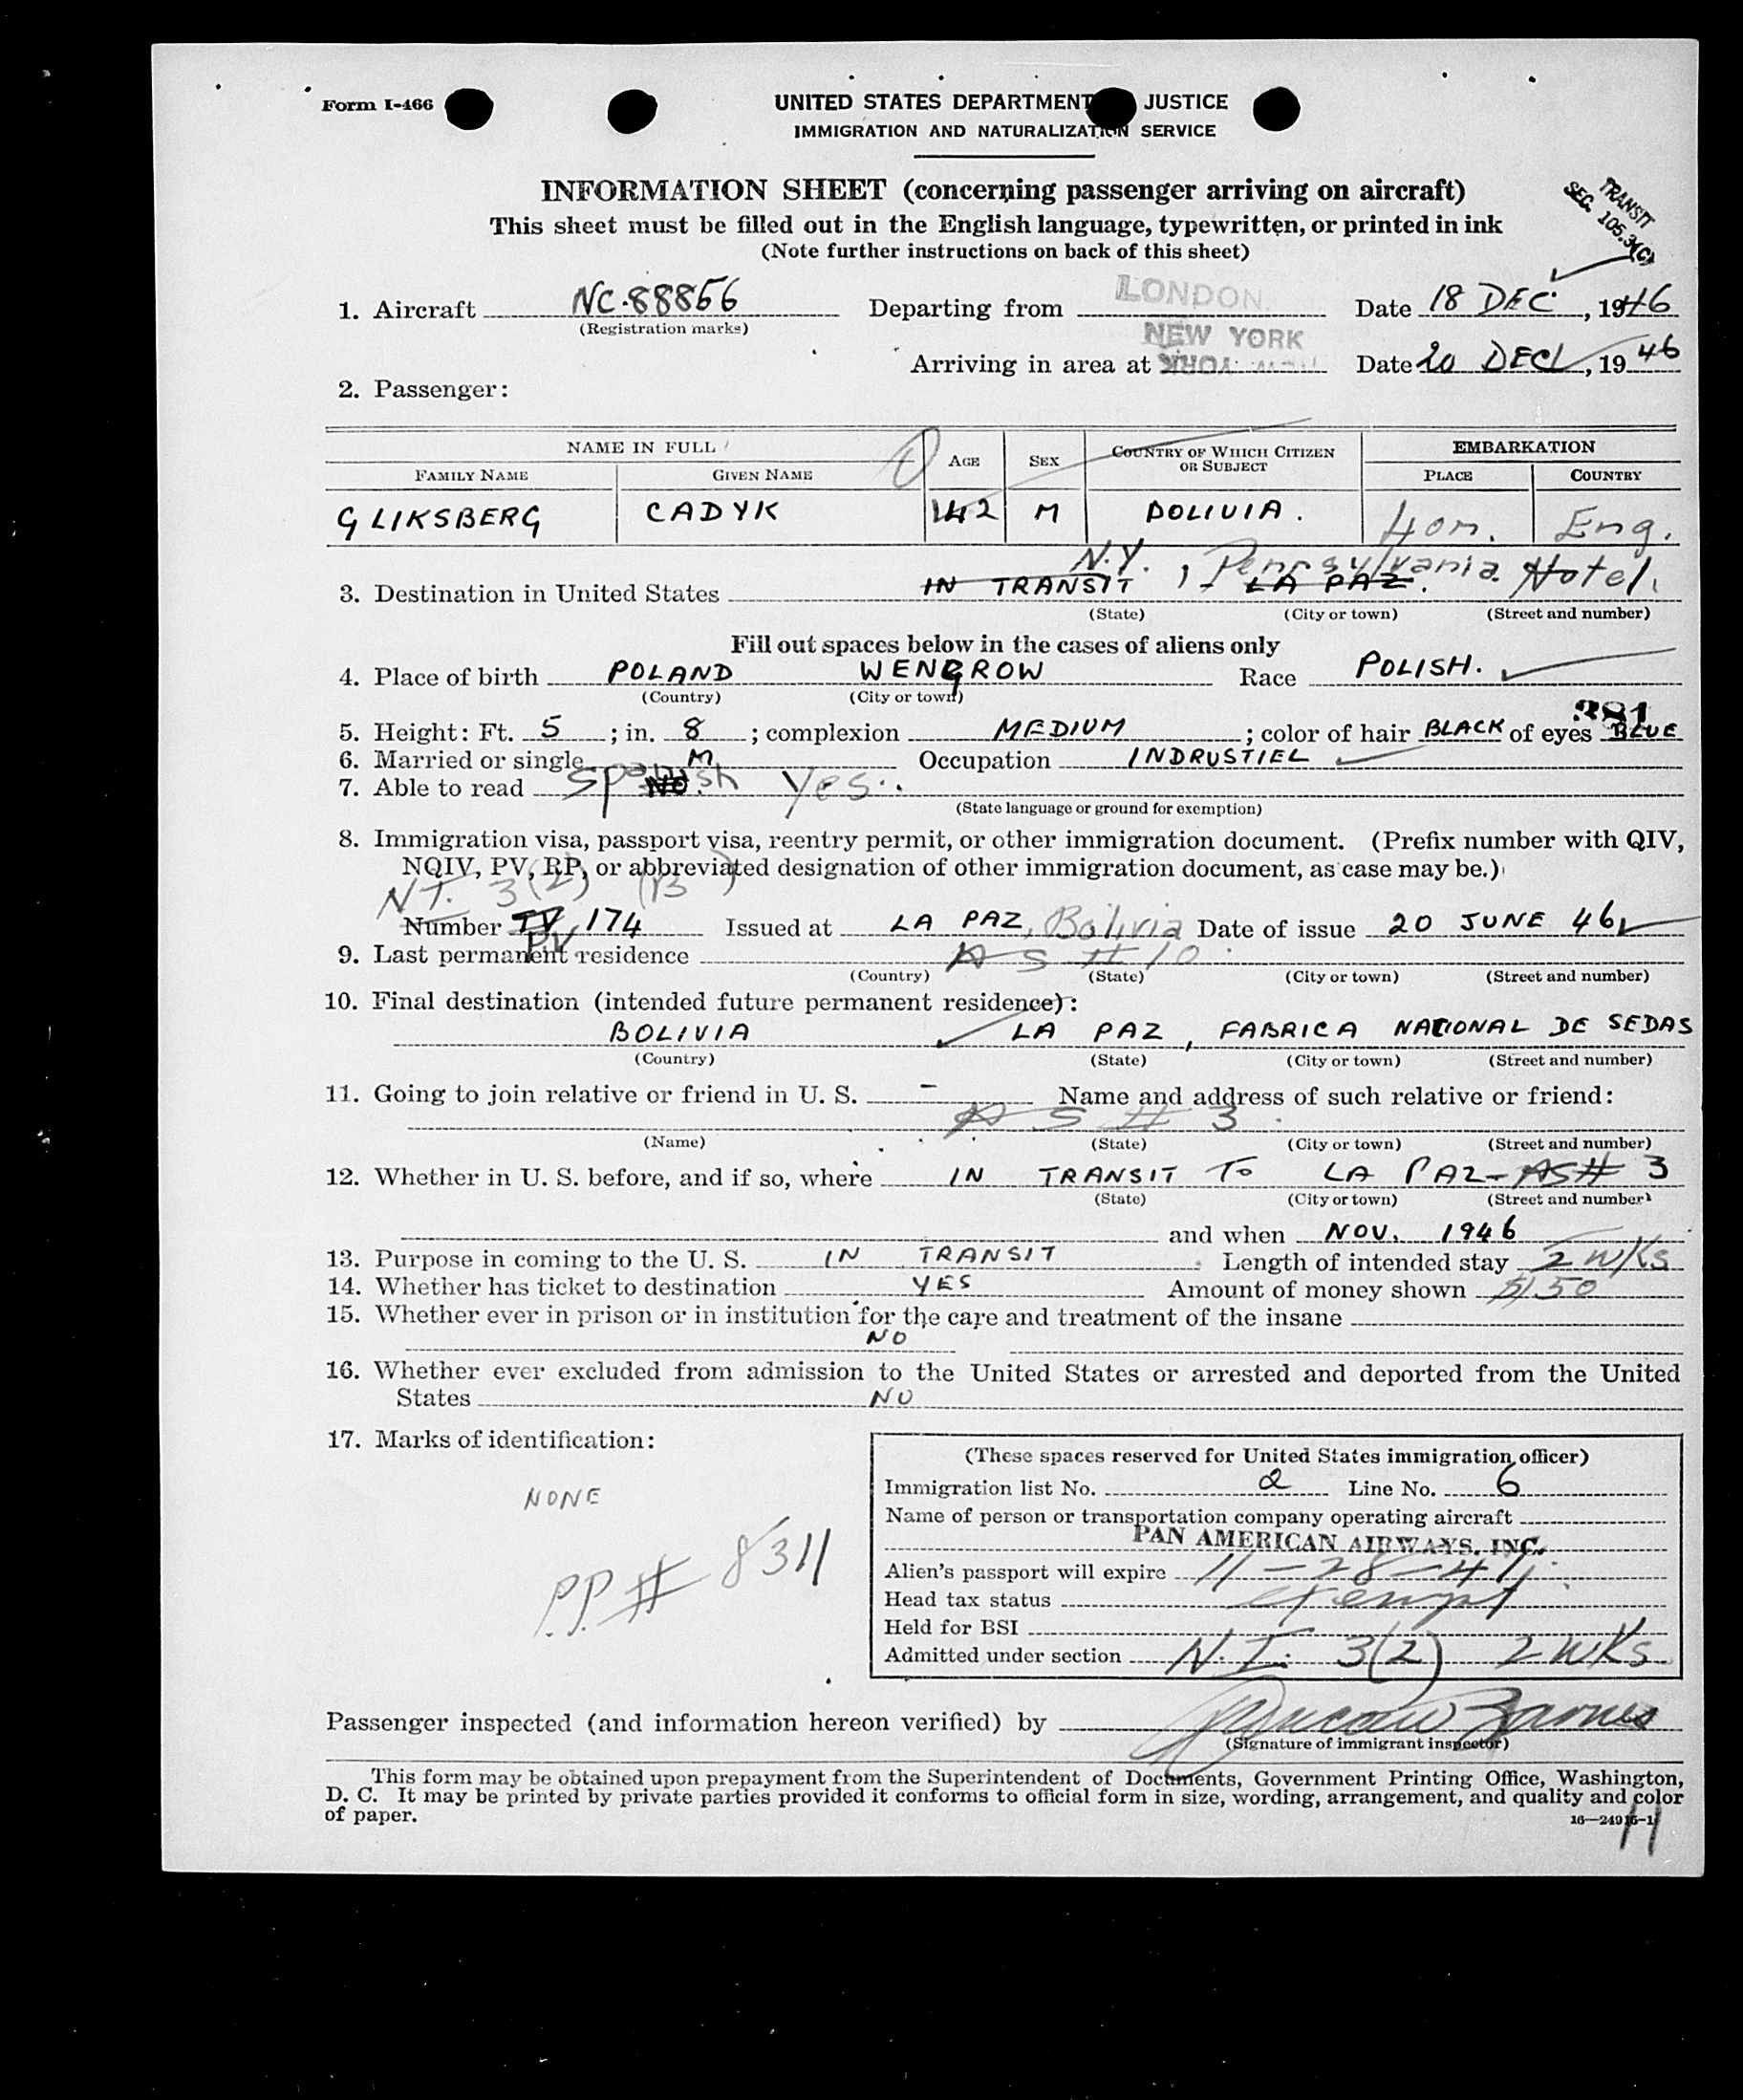 Form I-466
UNITED STATES DEPARTMENT JUSTICE
IMMIGRATION AND NATURALIZATION SERVICE
INFORMATION SHEET (concerning passenger arriving on aircraft)
TRANSIT
SEC. 105.3(C)
This sheet must be filled out in the English language, typewritten, or printed in ink
(Note further instructions on back of this sheet)
1. Aircraft NC.88856 Departing from LONDON Date 18 DEC, 1946
(Registration marks)
NEW YORK
Arriving in area at NEW YORK Date 20 DEC, 1946
2. Passenger:
NAME IN FULL AGE SEX COUNTRY OF WHICH CITIZEN OR SUBJECT EMBARKATION
FAMILY NAME GIVEN NAME PLACE COUNTRY
GLIKSBERG CADYK 42 M BOLIVIA. Lon. Eng.
N.Y., Pennsylvania Hotel.
3. Destination in United States IN TRANSIT LA PAZ.
(State) (City or town) (Street and number)
Fill out spaces below in the cases of aliens only
4. Place of birth POLAND WENGROW Race POLISH.
(Country) (City or town)
381
5. Height: Ft. 5; in. 8; complexion MEDIUM; color of hair BLACK of eyes BLUE
6. Married or single M Occupation INDRUSTIEL
7. Able to read Spanish NO. Yes.
(State language or ground for exemption)
8. Immigration visa, passport visa, reentry permit, or other immigration document. (Prefix number with QIV,
NQIV, PV, RP, or abbreviated designation of other immigration document, as case may be.)
N.I. 3(2) (B)
Number TV 174 Issued at LA PAZ, Bolivia Date of issue 20 JUNE 46
PV
9. Last permanent residence AS # 10
(Country) (State) (City or town) (Street and number)
10. Final destination (intended future permanent residence):
BOLIVIA LA PAZ, FABRICA NACIONAL DE SEDAS
(Country) (State) (City or town) (Street and number)
11. Going to join relative or friend in U. S. - Name and address of such relative or friend:
AS # 3
(Name) (State) (City or town) (Street and number)
12. Whether in U. S. before, and if so, where IN TRANSIT TO LA PAZ - AS# 3
(State) (City or town) (Street and number)
and when NOV. 1946
13. Purpose in coming to the U. S. IN TRANSIT Length of intended stay 2 wks
14. Whether has ticket to destination YES Amount of money shown $150
15. Whether ever in prison or in institution for the care and treatment of the insane
NO
16. Whether ever excluded from admission to the United States or arrested and deported from the United
States NO
17. Marks of identification:
NONE
P.P. # 8311
(These spaces reserved for United States immigration officer)
Immigration list No. 2 Line No. 6
Name of person or transportation company operating aircraft
PAN AMERICAN AIRWAYS, INC.
Alien's passport will expire 11-28-47
Head tax status exempt
Held for BSI
Admitted under section N.I. 3(2) 2 wks
Passenger inspected (and information hereon verified) by
(Signature of immigrant inspector)
This form may be obtained upon prepayment from the Superintendent of Documents, Government Printing Office, Washington,
D. C. It may be printed by private parties provided it conforms to official form in size, wording, arrangement, and quality and color
of paper.
11